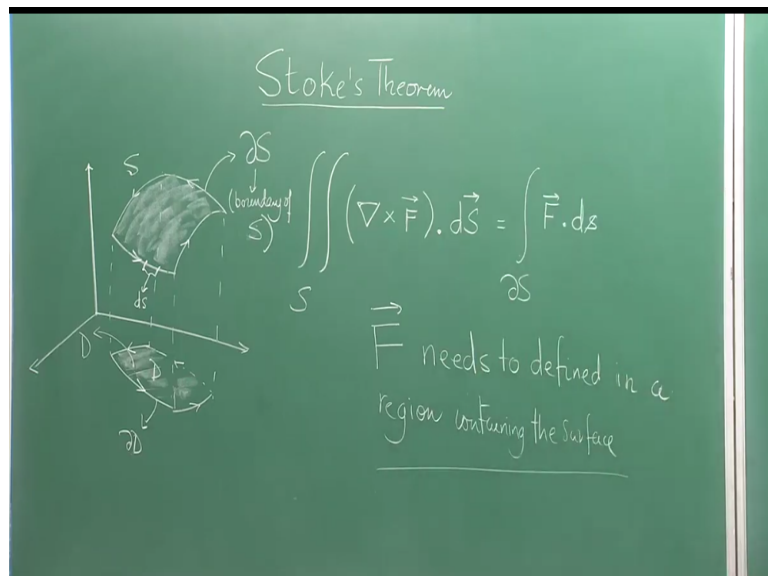 Stoke's Theorem
S
∂S
(boundary of
S)
∬ (∇ × F⃗) . dS⃗ = ∫ F⃗ . ds
S
∂S
ds
D
D
∂D
F⃗ needs to defined in a
region containing the surface